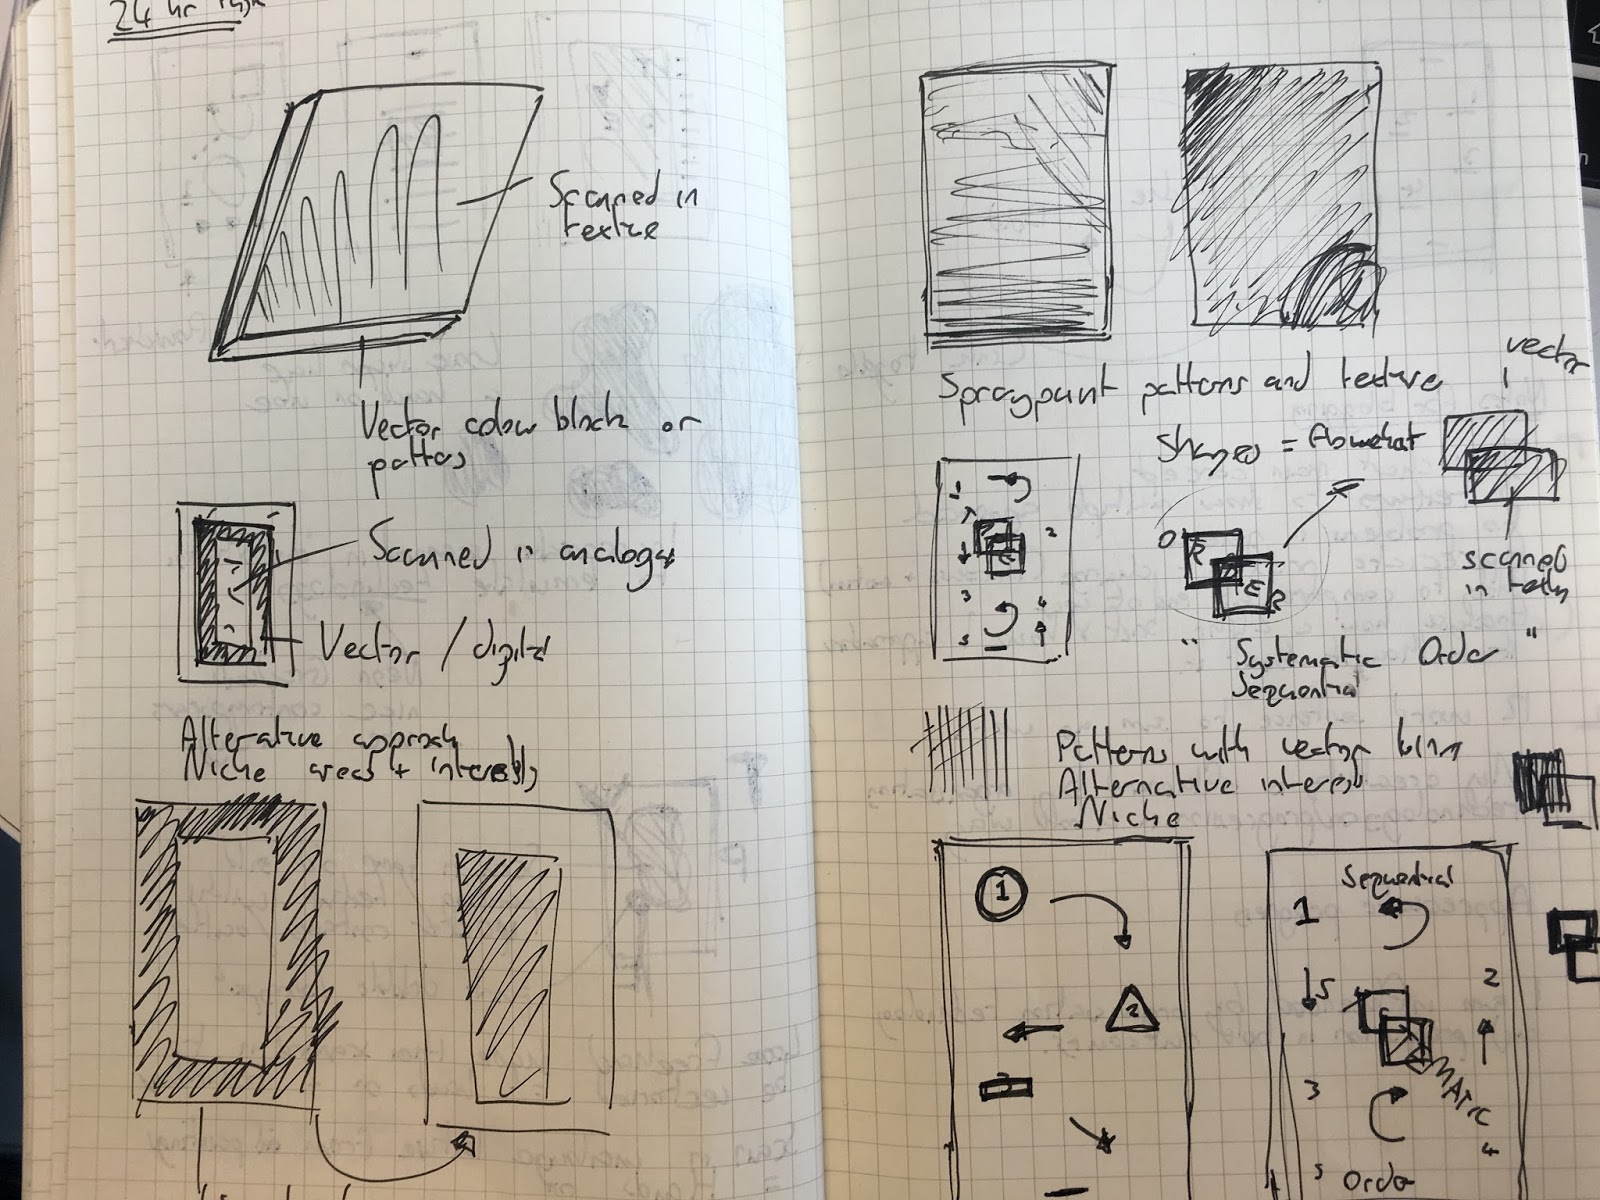 24 hr
Scanned in
texture
Vector colour block or
Scanned in analogue
Vector / digital
Alternative approach
Niche areas + interests
Spraypaint patterns and texture
vector
Shapes =
scanned
in
1
2
3
4
5
O R D E R
" Systematic Order "
Sequential
Patterns with vector
Alternative interest
Niche
1
2
3
Sequential
1
2
S
MATIC
3
4
5 Order